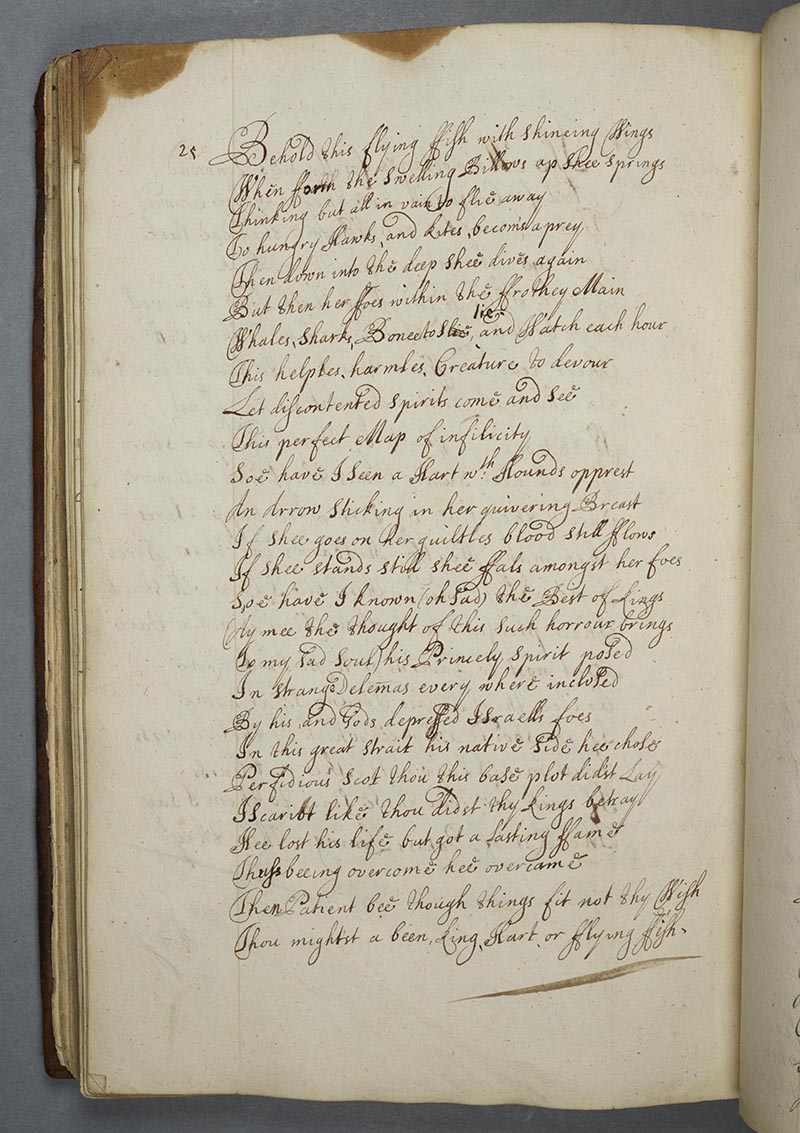 25 Behold this flying ffish with shineing Wings
When fforth the swelling Billows up shee springs
Thinking but all in vain to flie away
To hungry Hawks, and Kites, becom's a prey
Then down into the deep shee dives again
But then her ffoes within the ffrothey Main
Whales, Sharks, Boneetoes lie, and Watch each hour
This helples, harmles, Creature to devour
Let discontented spirits come and see
This perfect Map of infilicity
Soe have I seen a Hart wth Hounds opprest
An Arrow sticking in her quivering Breast
If shee goes on her guiltles blood still fflows
If shee stands still shee ffals amongst her foes
Soe have I known (oh sad) the Best of Kings
(Ay mee the thought of this such horrour brings
To my sad soul) his Princely spirit posed
In strange Delemas every where inclosed
By his, and Gods, depressed Israells foes
In this great strait his native side hee chose
Perfidious Scot thou this base plot didst Lay
Iscariot like thou didst thy Kings betray
Hee lost his life but got a lasting ffame
Thuss beeing overcome hee overcame
Then Patient bee though things fit not thy Wish
Thou mightst a been, King, Hart, or fflying ffish.